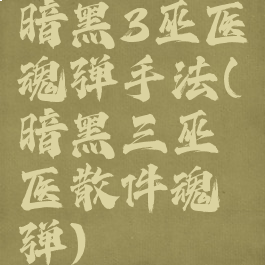 暗黑3巫医
魂弹手法(
暗黑三巫
医散件魂
弹)